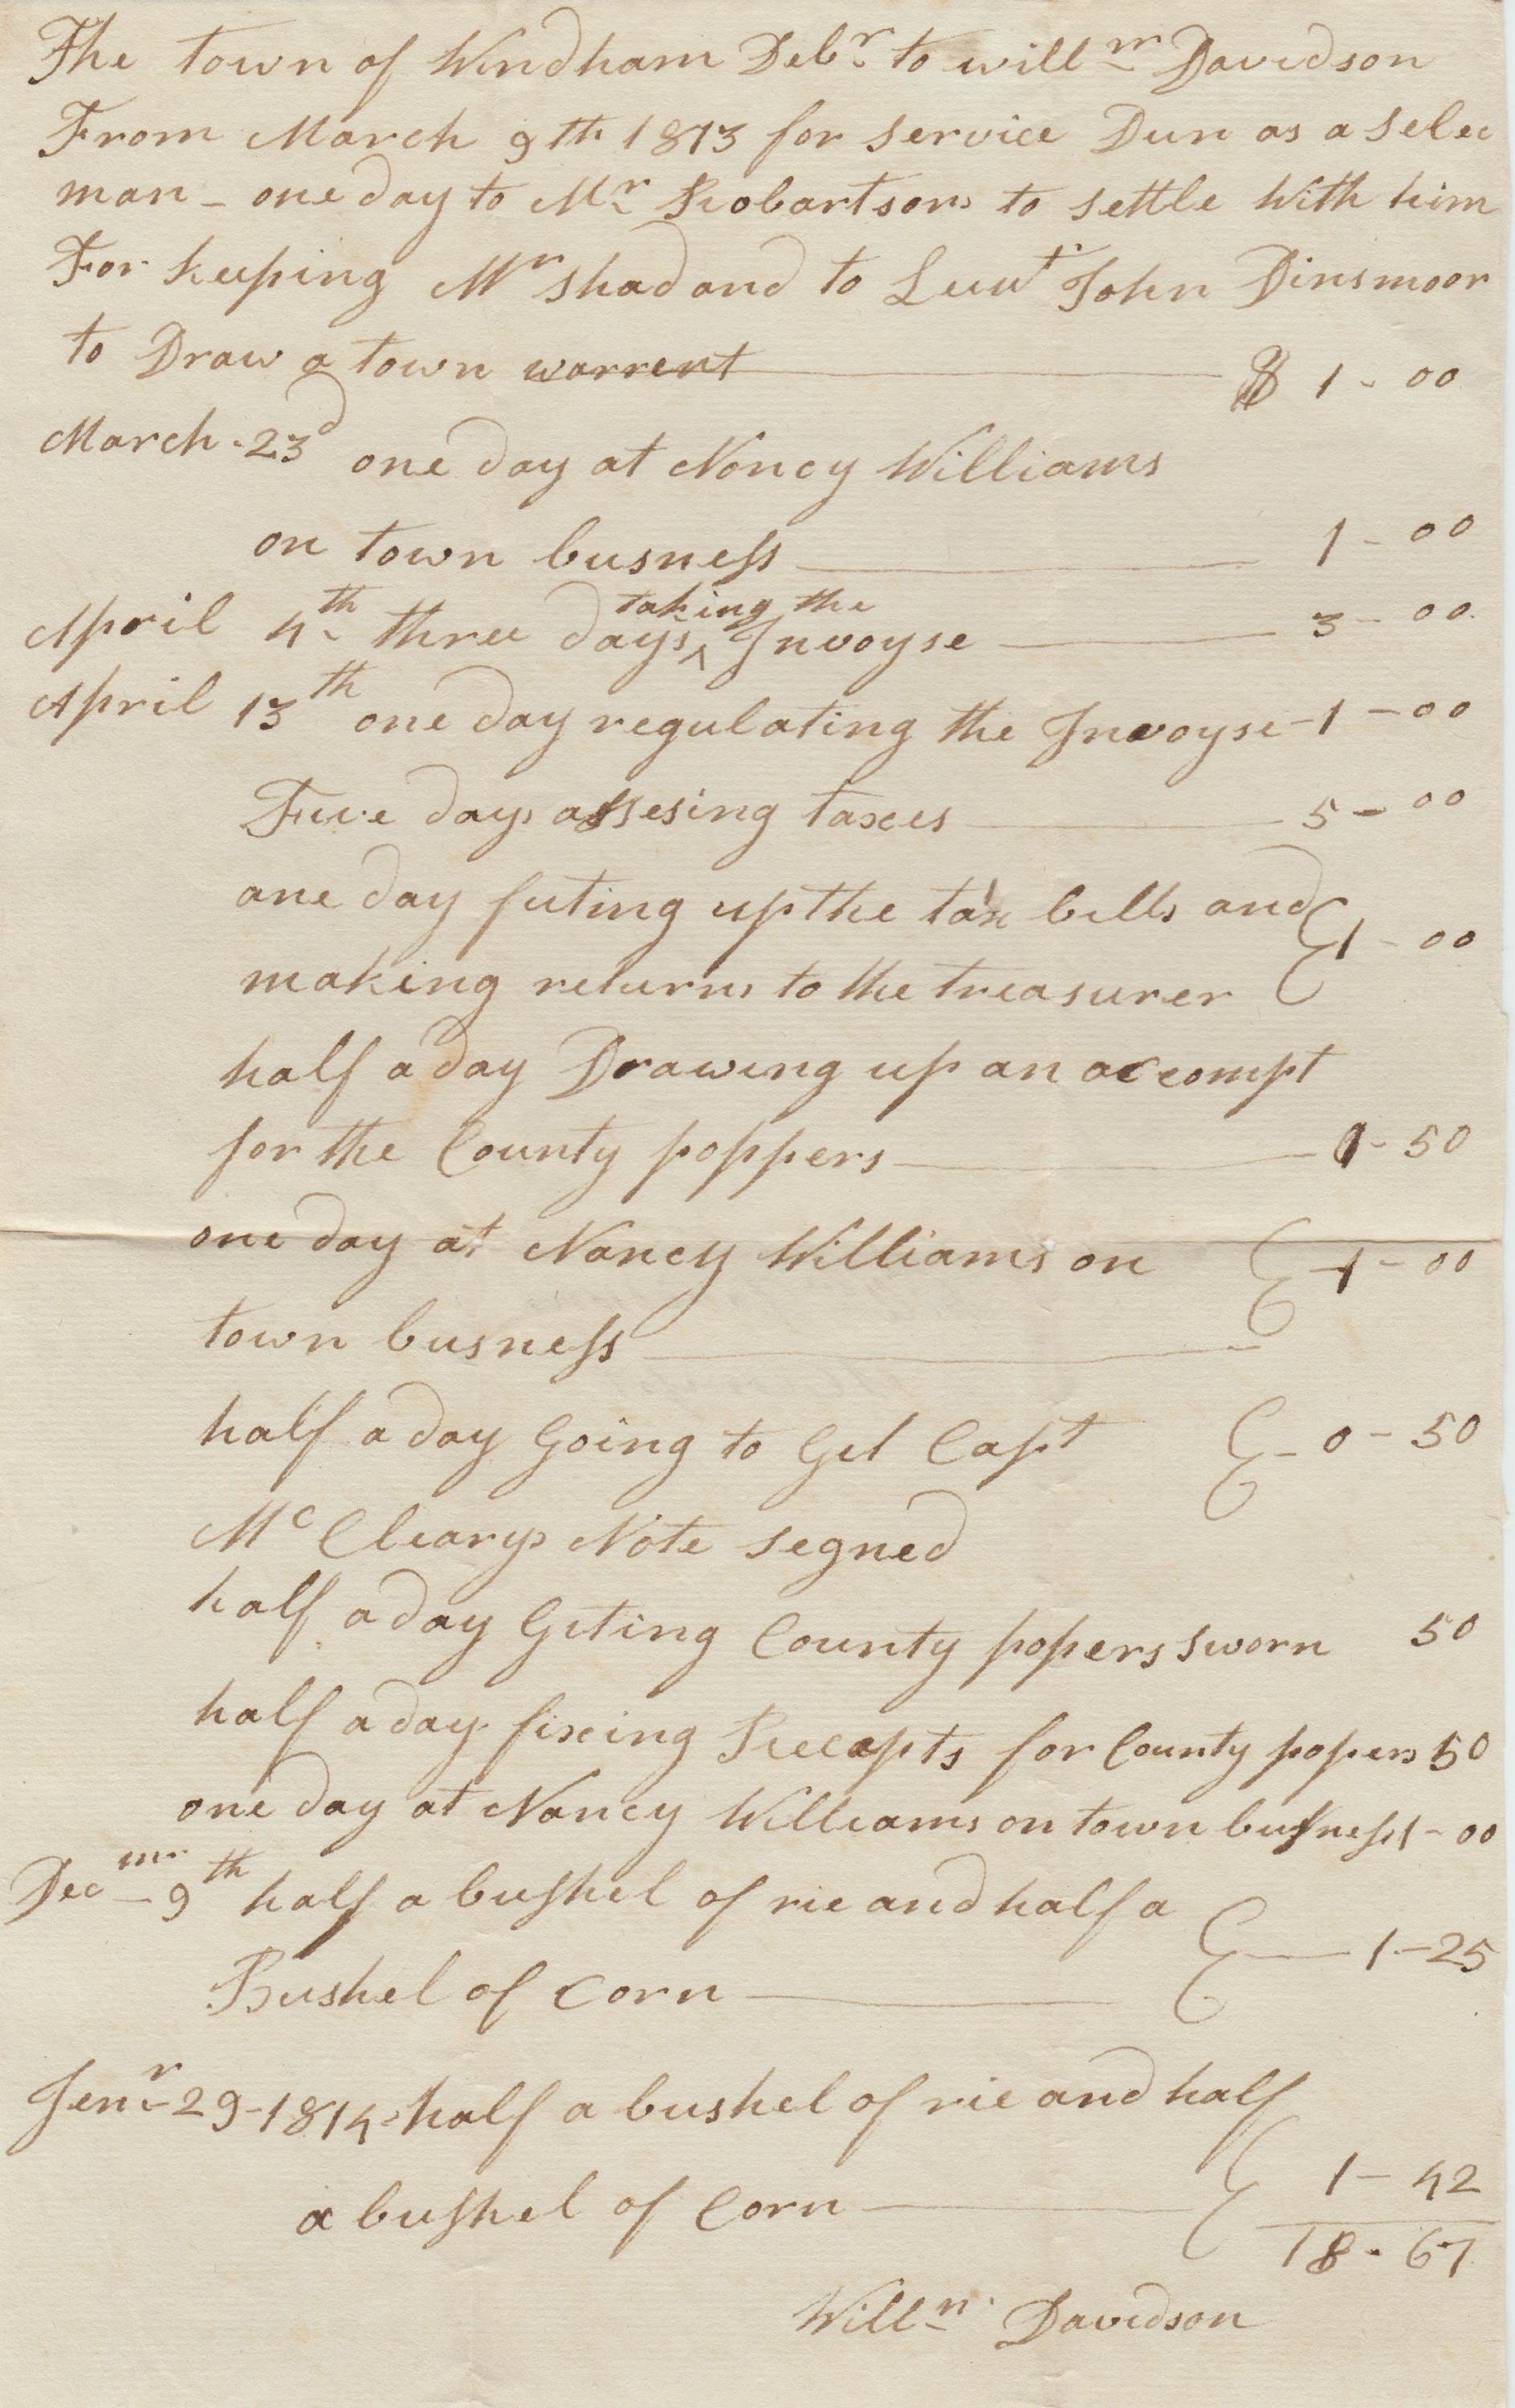 The town of Windham Debr to willm Davidson
From March 9th 1813 for Service Dun as a Selec
man - one day to Mr Robartsons to settle With him
For keeping Mr Shad and to Leut John Dinsmoor
to Draw a town warrent $ 1-00
March 23d one day at Nancy Williams
on town busness 1-00
April 4th three days ^ taking the Invoyse 3-00
April 13th one day regulating the Invoyse - 1-00
Five days assesing taxes 5-00
one day futing up the tax bills and
making returns to the treasurer 1-00
half a day Drawing up an accompt
for the County poppers 0-50
one day at Nancy Williams on 1-00
town busness
half a day Going to Get Capt 0-50
Mc Clearys Note segned
half a day Geting County popers sworn 50
half a day fixing Recepts for County popers 50
one day at Nancy Williams on town busness 1-00
Decm - 9th half a bushel of rie and half a
Bushel of Corn 1-25
Jenr - 29 - 1814 half a bushel of rie and half
a bushel of Corn 1-42
18-67
Willm Davidson